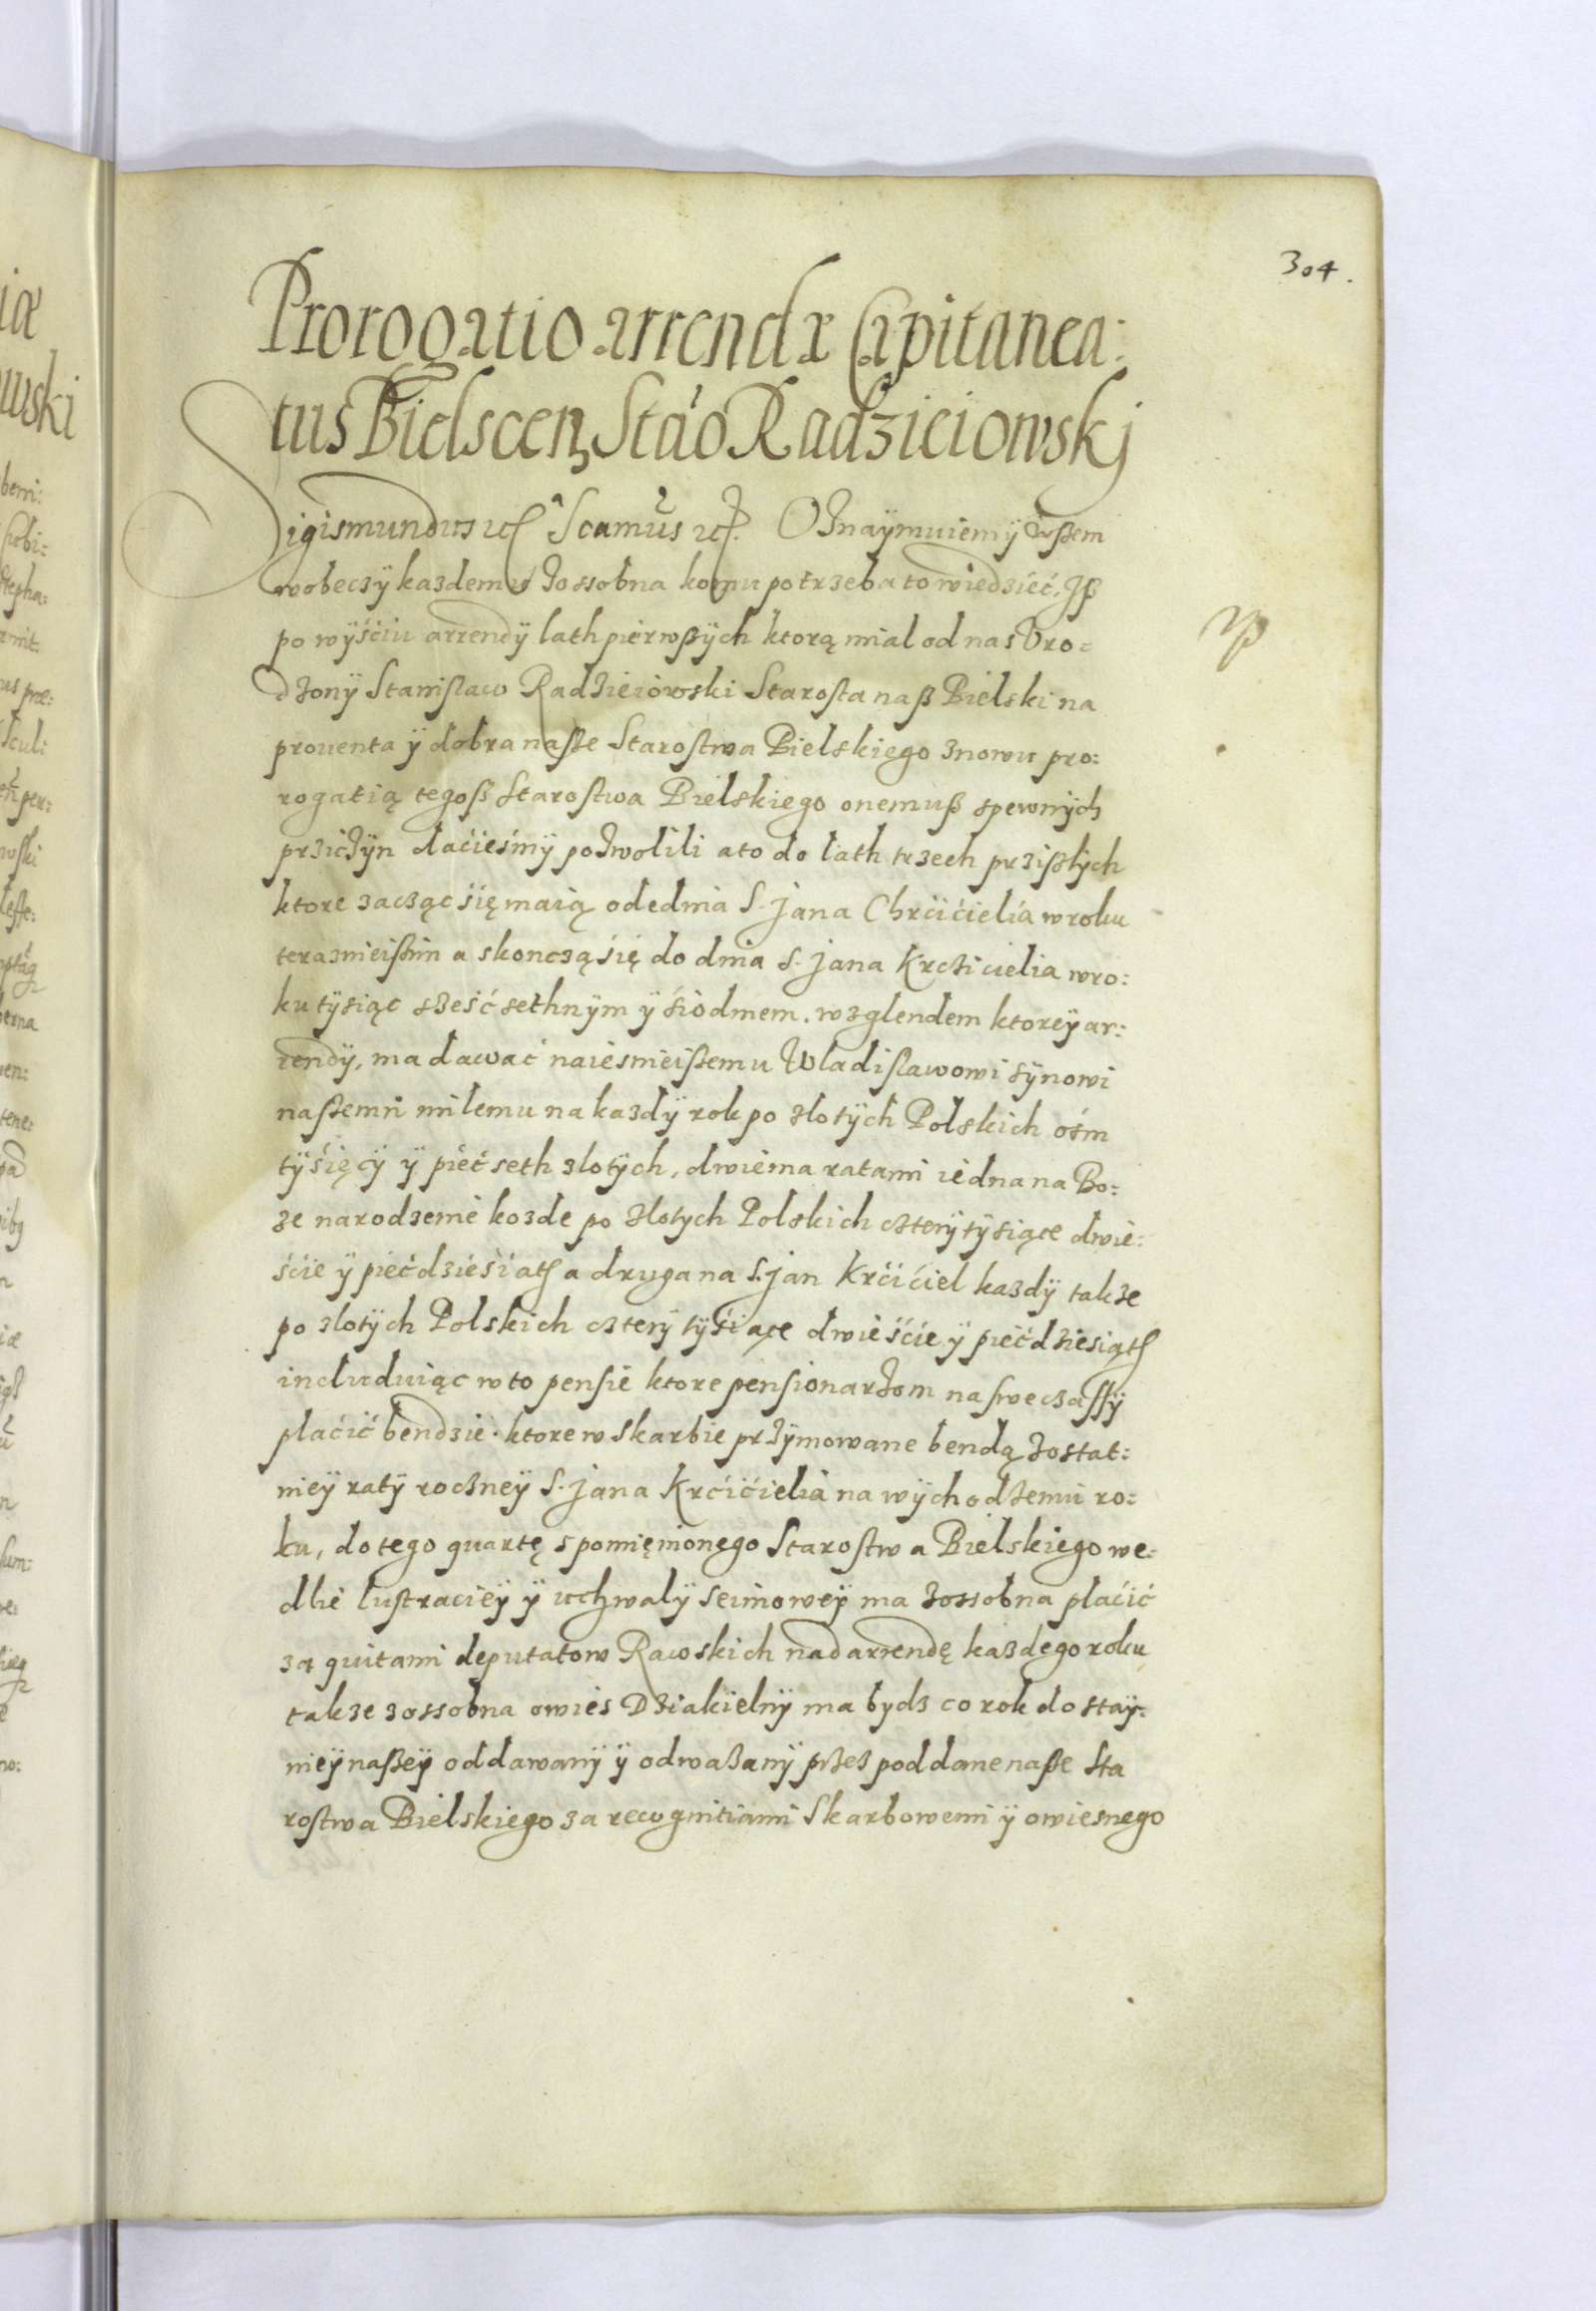 304.
Prorogatio arrendæ Capitanea:
tus Bielscen Stão Radzieiowskj
Sigismundus etc Scamus etc. Oznaÿmuiemÿ wszem
wobeczÿ kazdemu zossobna komu potrzeba to wiedzieć, Jß
po wÿśćiu arrendÿ lath pierwßÿch ktorą mial od nas Vro=
dzonÿ Stanislaw Radzieiowski Starosta naß Bielski na
prouenta ÿ dobra naße Starostwa Bielskiego znowu pro:
rogatią tegoß Starostwa Bielskiego onemuß spewnÿch
prziczÿn daćiesmÿ pozwolili a to do lath trzech prziszlÿch
ktore zacząc się maią odednia S. Jana Chrćićielia w roku
teraznieißim a skonczą śię do dnia S. Jana Krczicielia wro:
ku tÿsiąc sześć sethnÿm ÿ śiodmem. wzglendem ktoreÿ ar:
rendÿ, ma dawać naiesnieißemu Wladislawowi sÿnowi
naßemu milemu na kazdÿ rok po zlotÿch Polskich ośm
tÿśięcÿ ÿ pieć seth zlotÿch, dwiema ratami iedna na Bo:
ze narodzenie kozde po zlotych Polskich czterÿ tÿsiące dwie:
śćie ÿ piećdzieśiath a druga na S. Jan Krćićiel kazdÿ takze
po zlotÿch Polskich czterÿ tÿśiące dwieśćie ÿ piećdziesiąth
includuiąc w to pensie ktore pensionarzom na swe czassÿ
plaćić bendzie. ktore w skarbie przÿmowane bendą zostat:
nieÿ ratÿ roczneÿ S. Jana Krćićielia na wÿchodzeniu ro:
ku, do tego quartę spomięnionego Starostwa Bielskiego we:
dlie lustracieÿ ÿ uchwalÿ seimoweÿ ma zossobna plaćić
za quitami deputatow Rawskich nad arrendę kazdego roku
takze zossobna owies Dziakielnÿ ma bydz co rok do staÿ:
nieÿ naßeÿ oddawanÿ ÿ odwazanÿ przez poddane naße Sta
rostwa Bielskiego za recognitiami Skarbowemi ÿ owiesnego